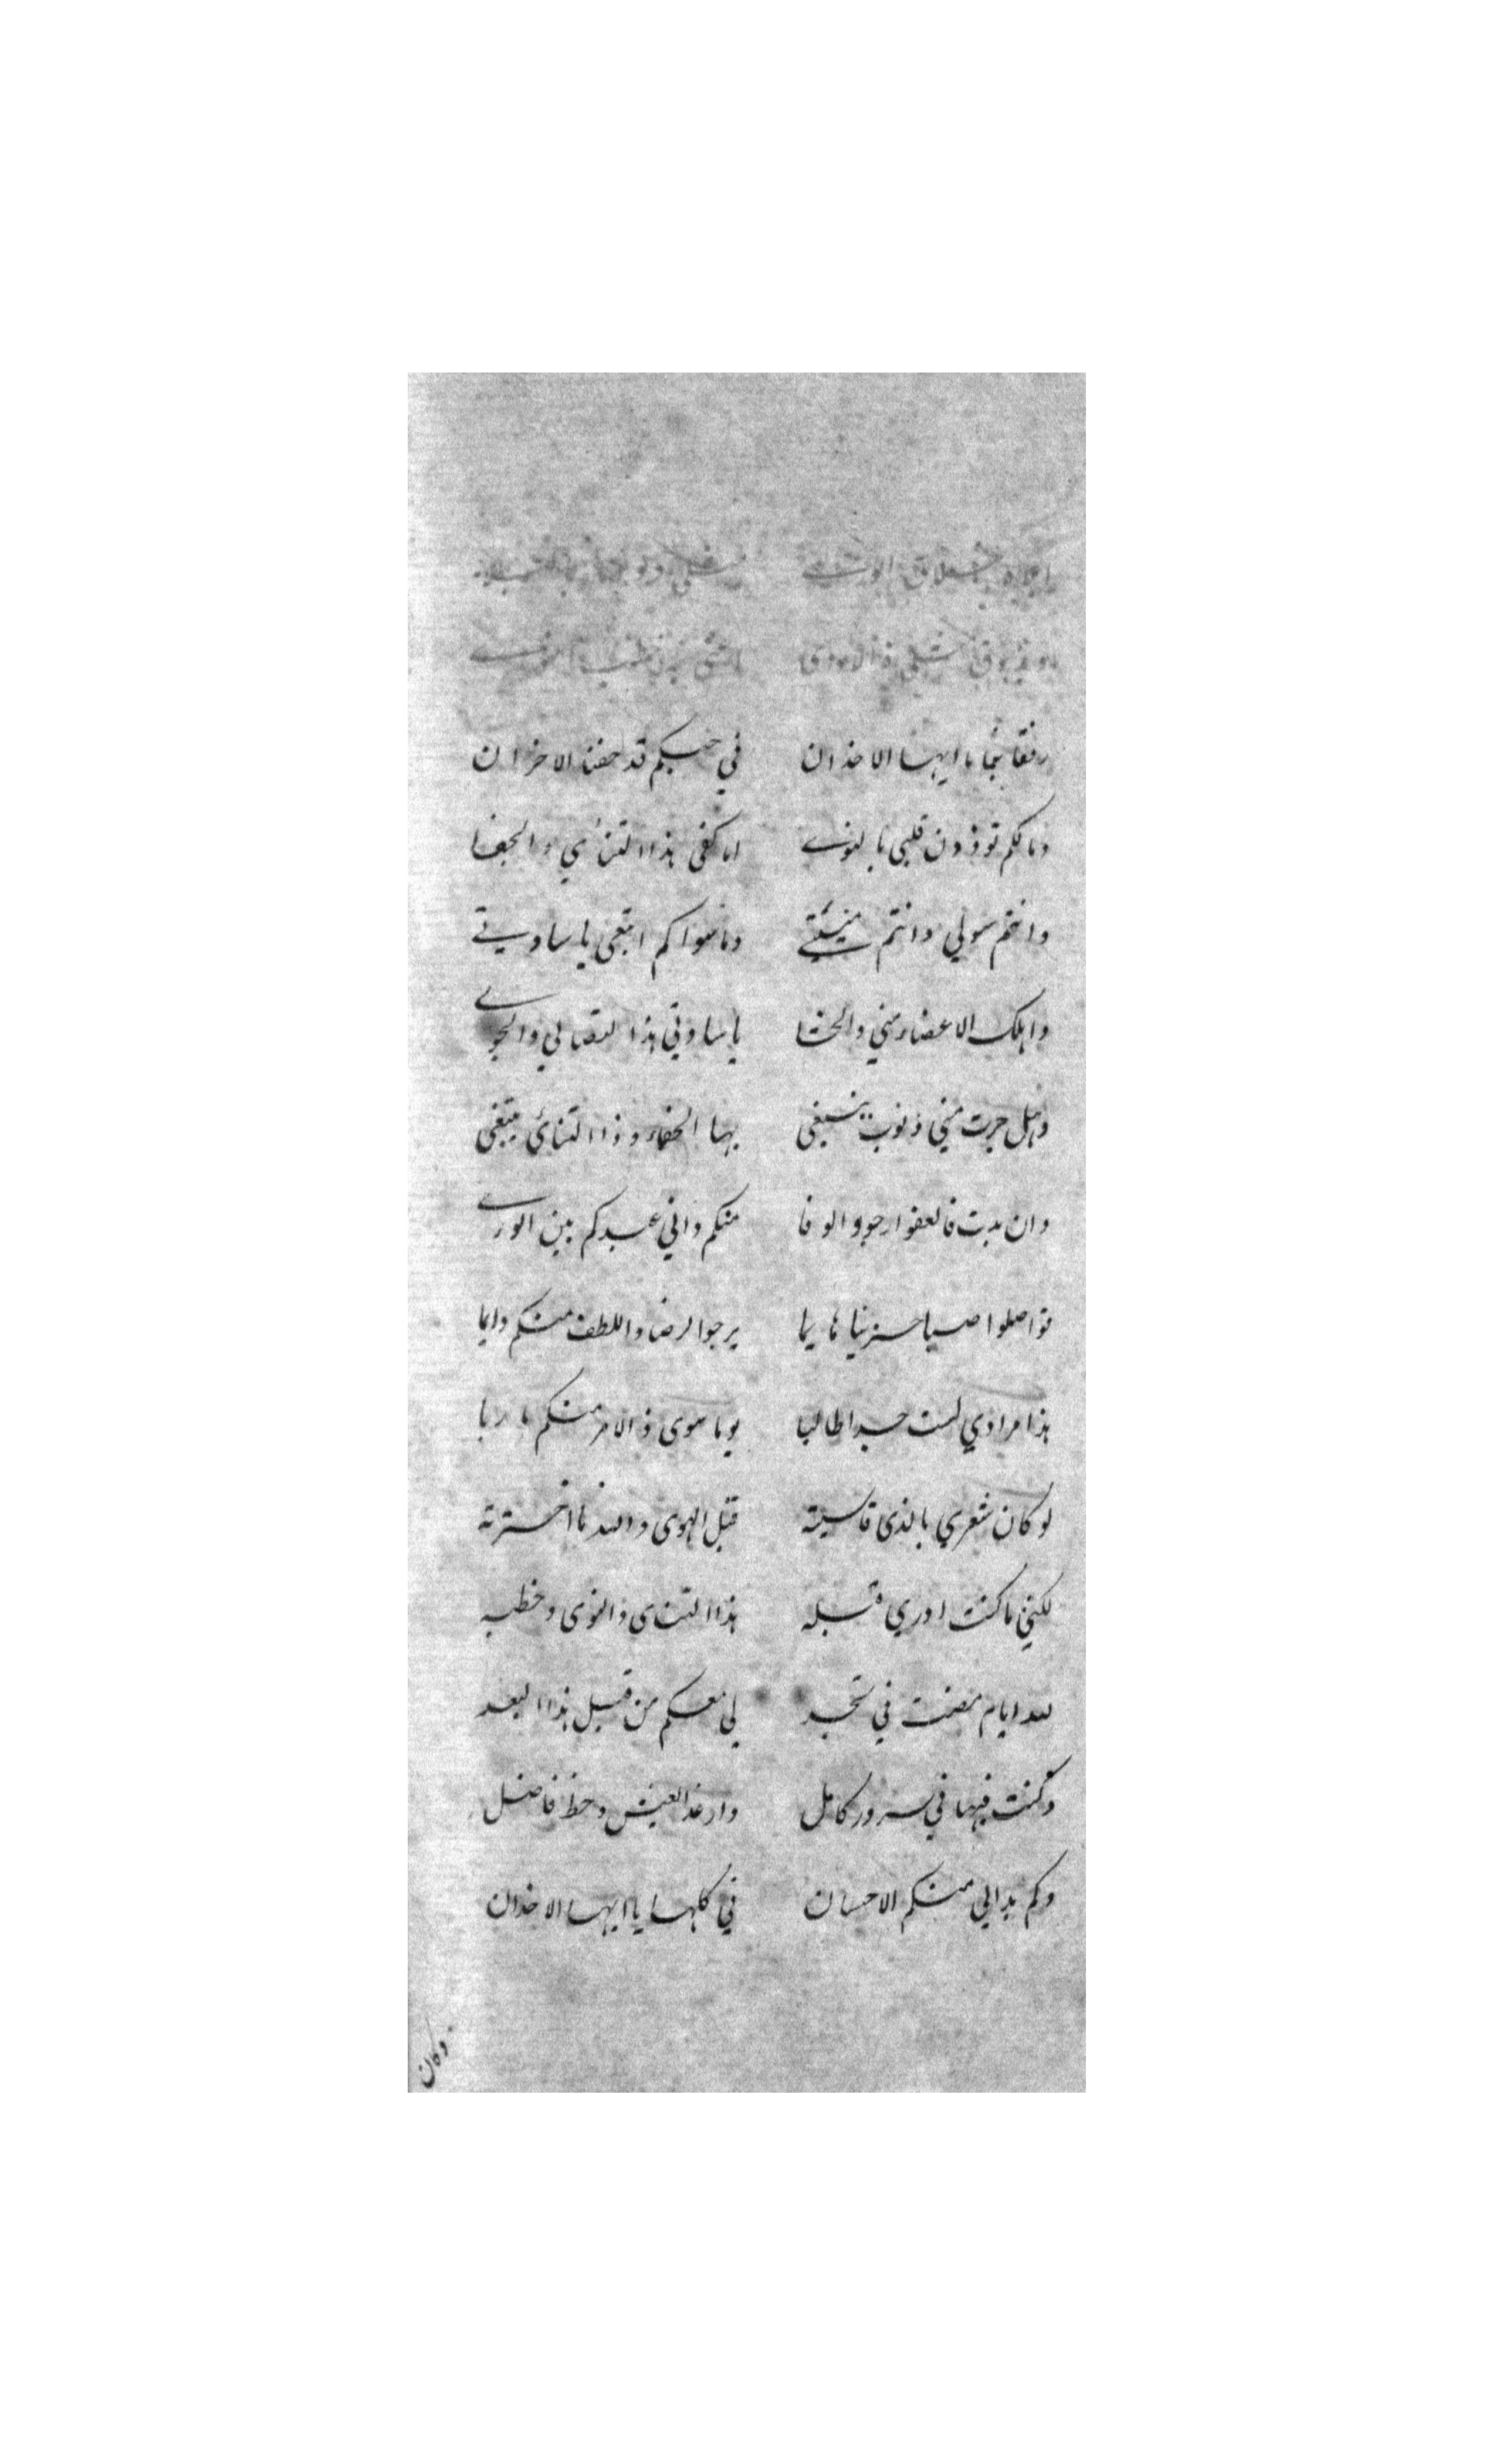 رفقا بنا يا ايها الاخدان في حبكم قد حفنا الاحزان
ومالكم توذون قلبي بالنوى اما كفى هذا التنأي والجفا
وانتم سولي وانتم منيتي وما سواكم ابتغى يا سادتي
واهلك الاعضاء مني والحشا يا سادتي هذا التصابي والجوى
وهل جرت مني ذنوب ينبغي بها الجفاء وذا التنائي يبتغى
وان بدت فالعفو ارجو والوفا منكم واني عبدكم بين الورى
تواصلوا صبا حزينا هايما يرجوا لرضا واللطف منكم دايما
هذا مرادي لست حبرا طالبا يوما سوى ذ الامر منكم راربا
لو كان شعري بالذى قاسيته قبل الهوى والله ما اخترته
لكنني ما كنت ادري قبله هذا التناى والنوى وخطبه
لله ايام مضت في نجد لي معكم من قبل هذا البعد
وكنت فيها في سرور كامل وارغد العيش وحظ فاضل
وكم بدالي منكم الاحسان في كلها يا ايها الاخدان
وكان